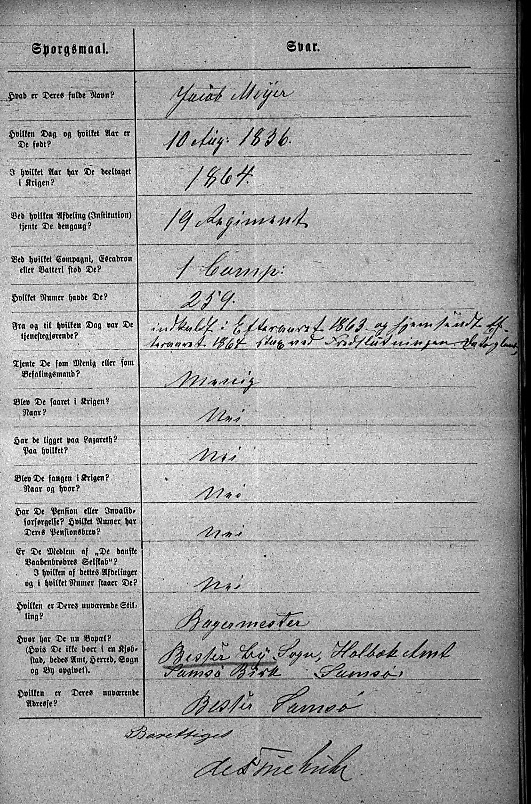 Spørgsmaal. Svar.
Hvad er Deres fulde Navn? Jacob Meijer
Hvilken Dag og hvilket Aar er
De født? 10 Aug. 1836.
I hvilket Aar har De deeltaget
i Krigen? 1864.
Ved hvilken Afdeling (Institution)
tjente De dengang? 19 Regiment
Ved hvilket Compagni, Escadron
eller Batteri stod De? 1 Comp:
Hvilket Numer havde De? 259.
Fra og til hvilken Dag var De
tjenestegjørende? indkaldt i Efteraaret 1863 og hjemsendt Ef-
teraaret 1864 strax ved Fredslutningen
Tjente De som Menig eller som
Befalingsmand? Menig
Blev De saaret i Krigen?
Naar? Nei
Har de ligget paa Lazareth?
Paa hvilket? Nei
Blev De fangen i Krigen?
Naar og hvor? Nei
Har De Pension eller Invalid-
forsørgelse? Hvilket Numer har
Deres Pensionsbrev? Nei
Er De Medlem af „De danske
Vaabenbrødres Selskab"?
I hvilken af dettes Afdelinger
og i hvilket Numer staaer De? Nei
Hvilken er Deres nuværende Stil-
ling? Bagermester
Hvor har De nu Bopæl?
(Hvis De ikke boer i en Kjøb-
stad, bedes Amt, Herred, Sogn
og By opgivet). Besser By Sogn, Holbæk Amt
Samsø Birk Samsø.
Hvilken er Deres nuværende
Adresse? Besser Samsø
Berettiges